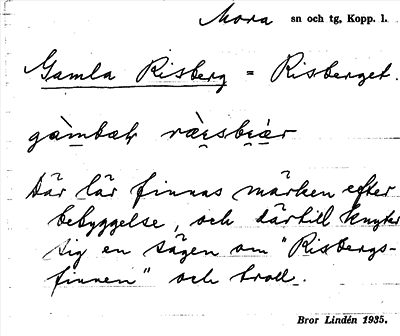 Mora sn och tg, Kopp. l.
Gamla Risberg = Risberget.
Där lär finnas märken efter
bebyggelse, och därtill knyter
sig en sägen om "Risbergs-
finnen" och troll.
Bror Lindén 1935.